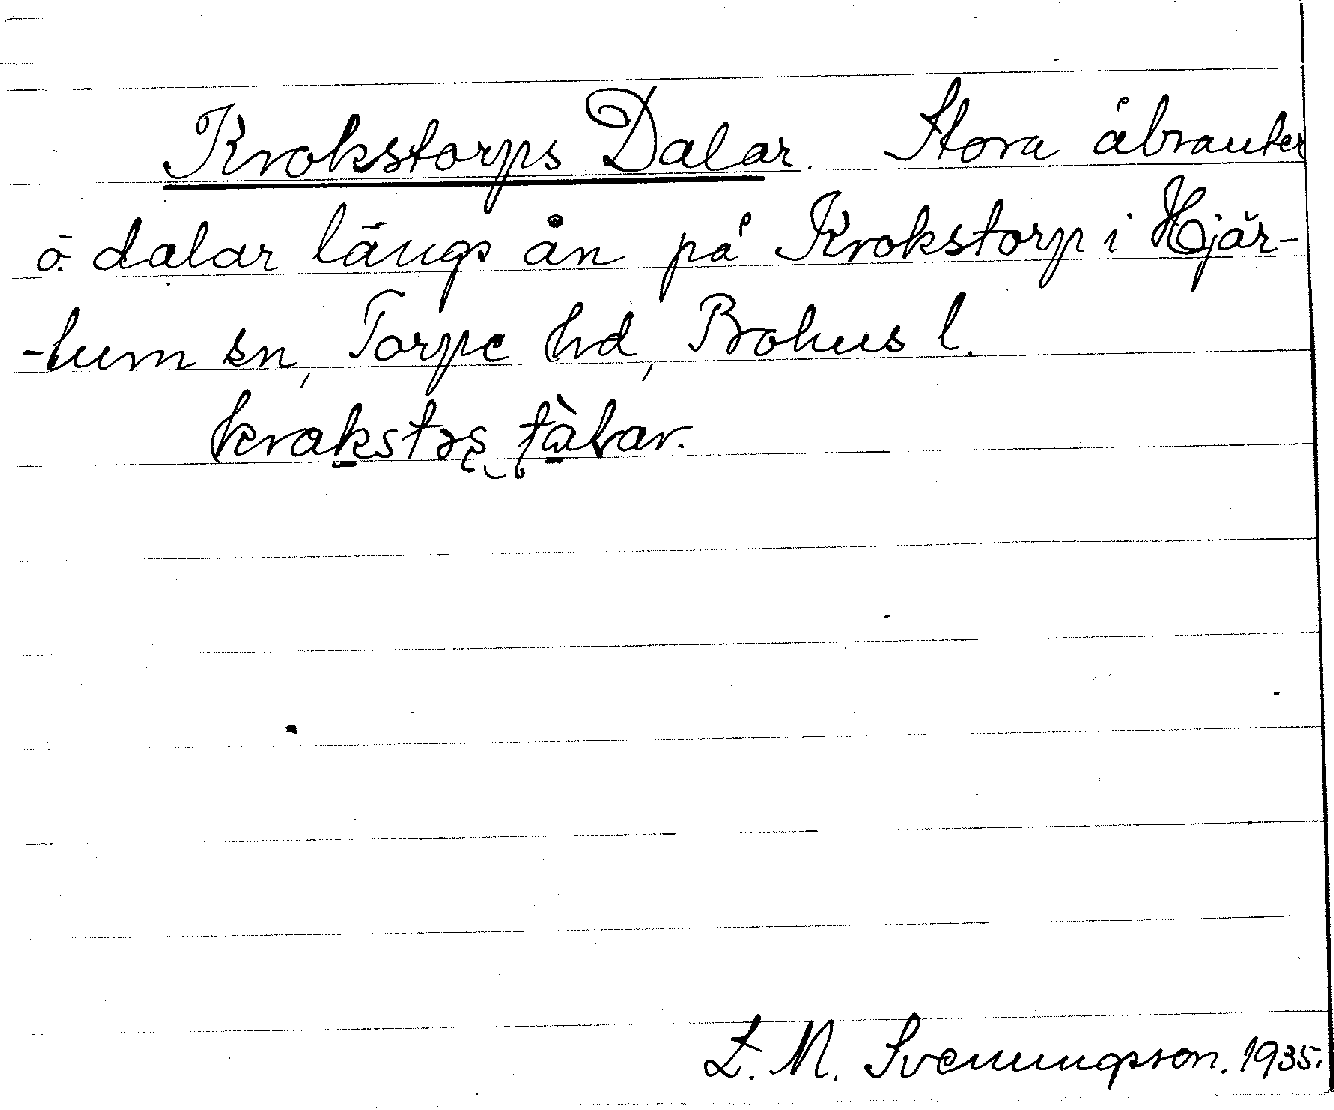 Krokstorps Dalar. Stora åbranter
o. dalar längs ån på Krokstorp i Hjär-
-tum sn, Torpe hd, Bohus l.
L. M. Svenungson. 1935.